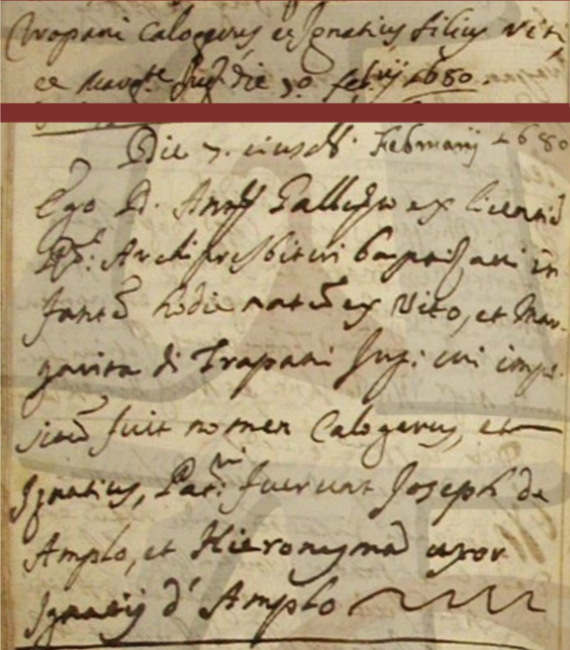 Trapani Calogerus et Ignatius filius Viti
et Margte Jug. die 7o febrij 1680.
Die 7. eiusdē. Februarij 1680
Ego D. Ant. Gallegro ex licentia
Rdi: Archipresbiteri baptizavi in
fantē hodie natū ex Vito, et Mar-
garita di Trapani Jug: cui impo-
situ fuit nomen Calogerus, et
Ignatius, Patni: fuerunt Joseph de
Amplo, et Hieronyma uxor
Ignatij d' Amplo